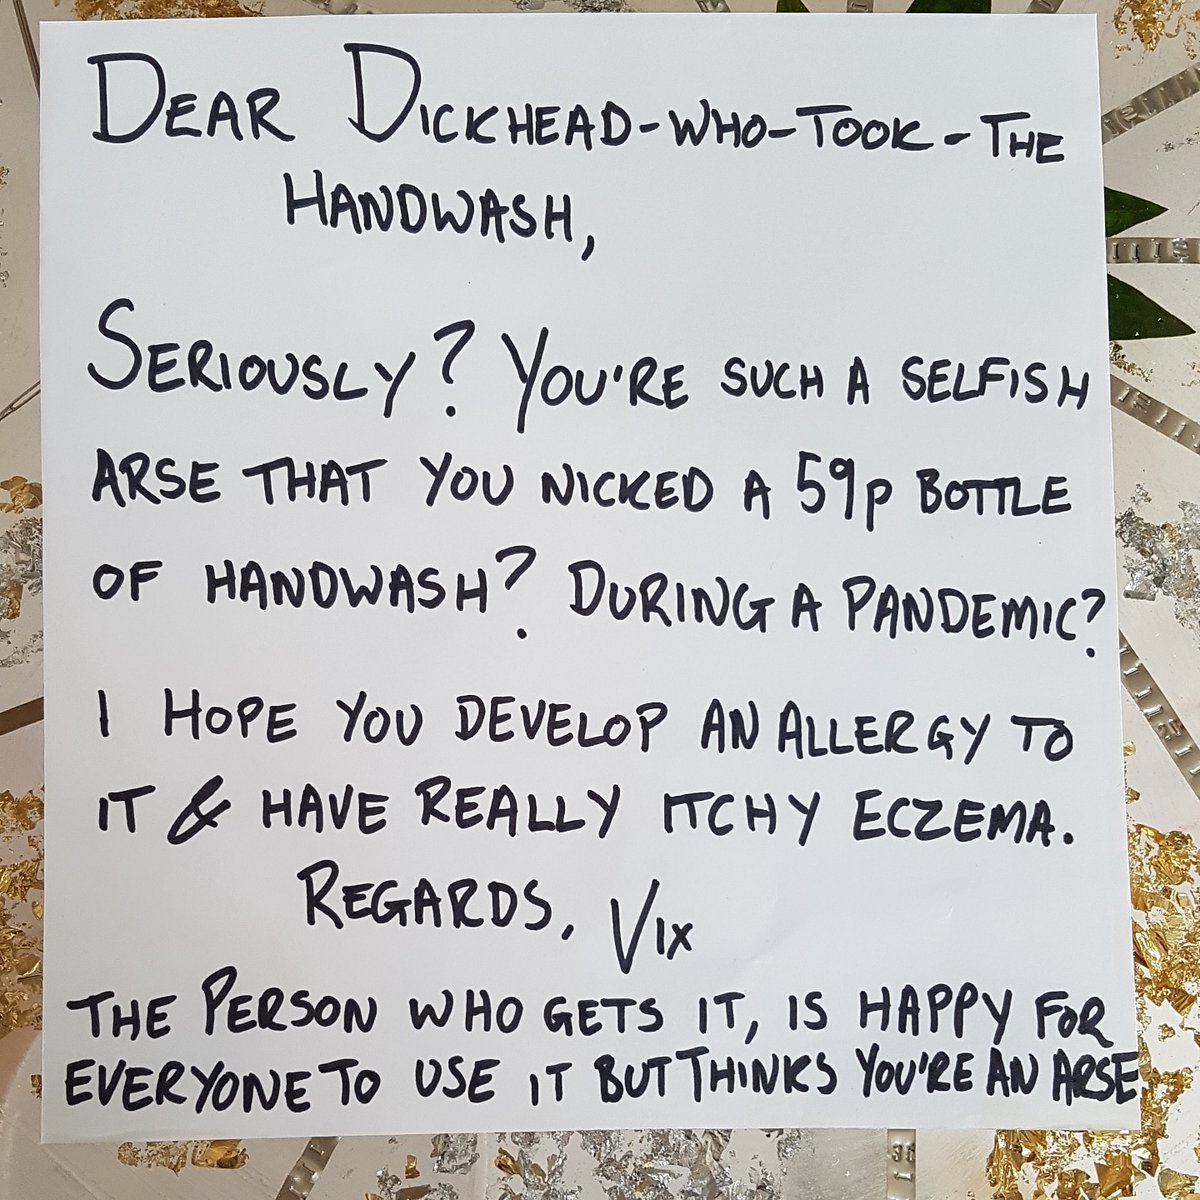 DEAR DICKHEAD-WHO-TOOK-THE
HANDWASH,
SERIOUSLY? YOU'RE SUCH A SELFISH
ARSE THAT YOU NICKED A 59p BOTTLE
OF HANDWASH? DURING A PANDEMIC?
I HOPE YOU DEVELOP AN ALLERGY TO
IT & HAVE REALLY ITCHY ECZEMA.
REGARDS, VIX
THE PERSON WHO GETS IT, IS HAPPY FOR
EVERYONE TO USE IT BUT THINKS YOU'RE AN ARSE